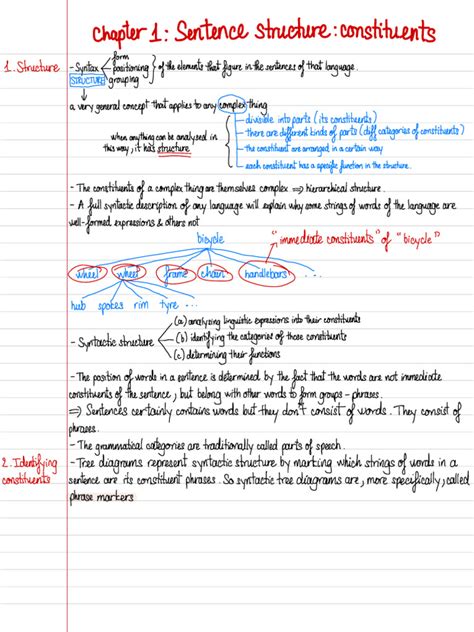 Chapter 1: Sentence structure: constituents
1. Structure
- Syntax
form
positioning
grouping
of the elements that figure in the sentences of that language.
STRUCTURE
a very general concept that applies to any complex thing
when anything can be analysed in
this way, it has structure
- divisible into parts (its constituents)
- there are different kinds of parts (diff categories of constituents)
- the constituent are arranged in a certain way
- each constituent has a specific function in the structure.
- The constituents of a complex thing are themselves complex ⇒ hierarchical structure.
- A full syntactic description of any language will explain why some strings of words of the language are
well-formed expressions & others not
bicycle
"immediate constituents" of "bicycle"
wheel wheel frame chain handlebars ...
hub spokes rim tyre ...
- Syntactic structure
(a) analyzing linguistic expressions into their constituents
(b) identifying the categories of those constituents
(c) determining their functions
- The position of words in a sentence is determined by the fact that the words are not immediate
constituents of the sentence, but belong with other words to form groups - phrases.
⇒ Sentences certainly contains words but they don't consist of words. They consist of
phrases.
- The grammatical categories are traditionally called parts of speech.
2. Identifying
constituents
- Tree diagrams represent syntactic structure by marking which strings of words in a
sentence are its constituent phrases. So syntactic tree diagrams are, more specifically, called
phrase markers